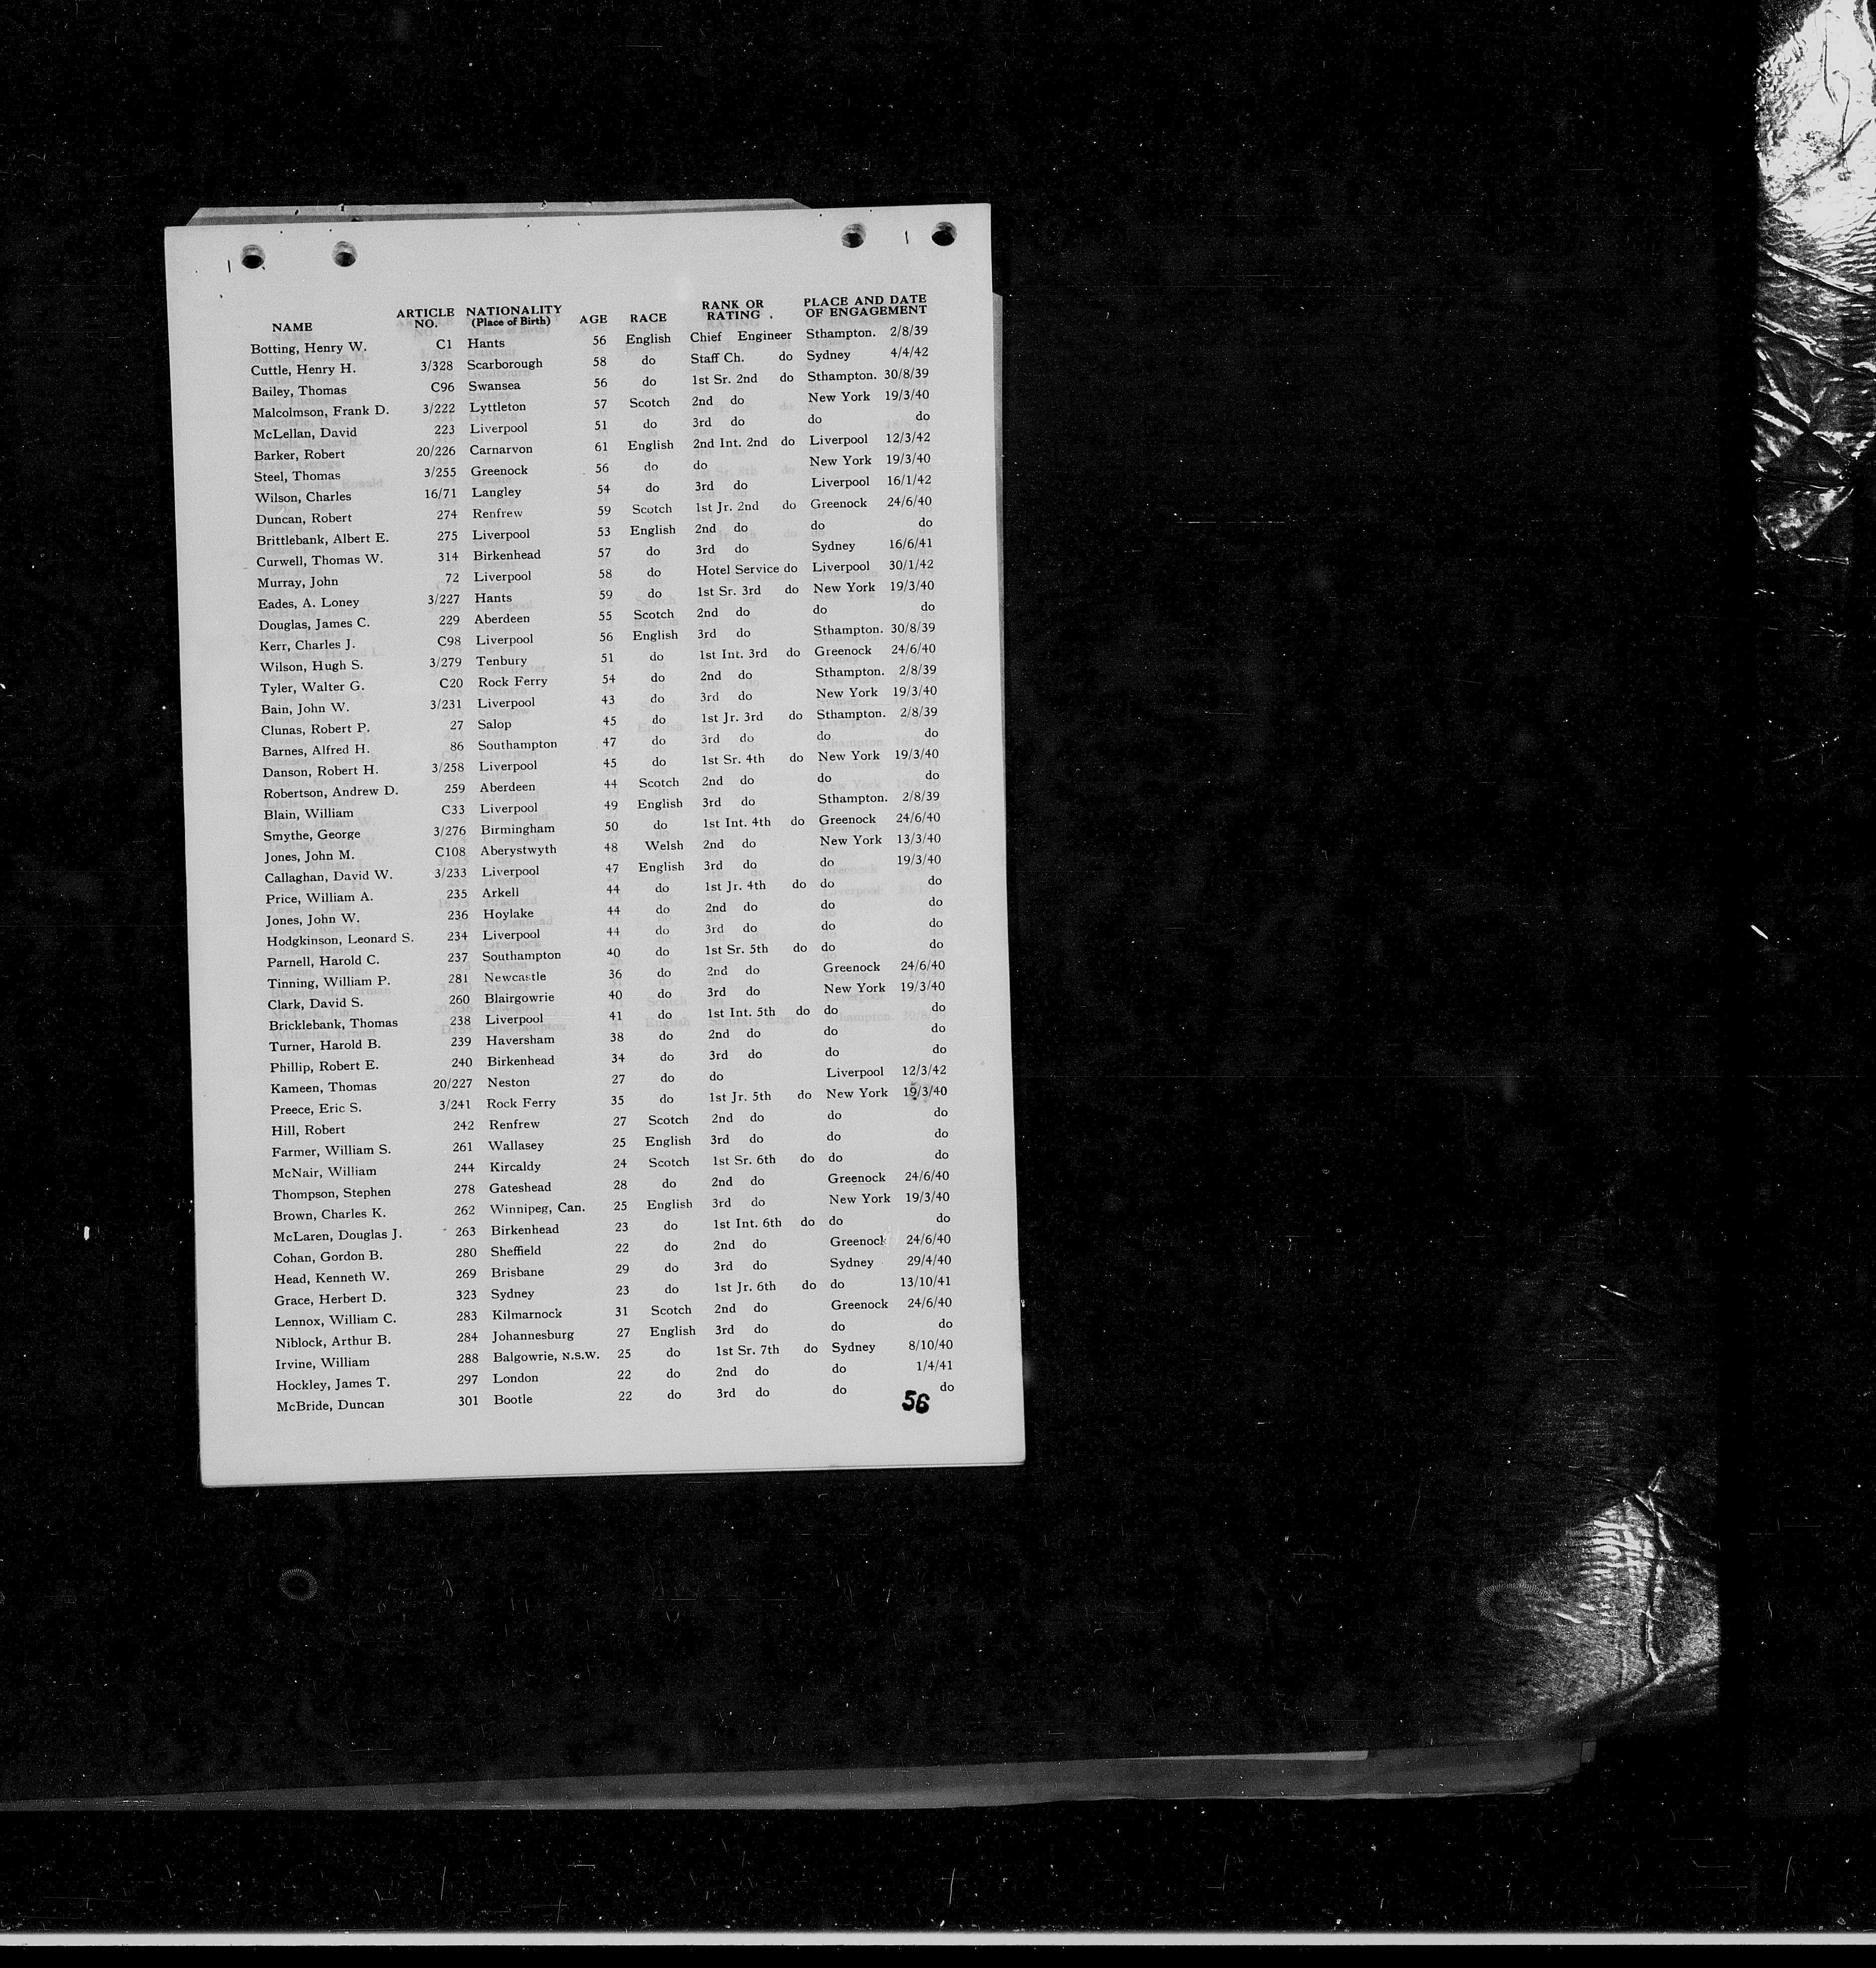 NAME ARTICLE NO. NATIONALITY (Place of Birth) AGE RACE RANK OR RATING PLACE AND DATE OF ENGAGEMENT
Botting, Henry W. C1 Hants 56 English Chief Engineer Sthampton. 2/8/39
Cuttle, Henry H. 3/328 Scarborough 58 do Staff Ch. do Sydney 4/4/42
Bailey, Thomas C96 Swansea 56 do 1st Sr. 2nd do Sthampton. 30/8/39
Malcolmson, Frank D. 3/222 Lyttleton 57 Scotch 2nd do New York 19/3/40
McLellan, David 223 Liverpool 51 do 3rd do do do
Barker, Robert 20/226 Carnarvon 61 English 2nd Int. 2nd do Liverpool 12/3/42
Steel, Thomas 3/255 Greenock 56 do do New York 19/3/40
Wilson, Charles 16/71 Langley 54 do 3rd do Liverpool 16/1/42
Duncan, Robert 274 Renfrew 59 Scotch 1st Jr. 2nd do Greenock 24/6/40
Brittlebank, Albert E. 275 Liverpool 53 English 2nd do do do
Curwell, Thomas W. 314 Birkenhead 57 do 3rd do Sydney 16/6/41
Murray, John 72 Liverpool 58 do Hotel Service do Liverpool 30/1/42
Eades, A. Loney 3/227 Hants 59 do 1st Sr. 3rd do New York 19/3/40
Douglas, James C. 229 Aberdeen 55 Scotch 2nd do do do
Kerr, Charles J. C98 Liverpool 56 English 3rd do Sthampton. 30/8/39
Wilson, Hugh S. 3/279 Tenbury 51 do 1st Int. 3rd do Greenock 24/6/40
Tyler, Walter G. C20 Rock Ferry 54 do 2nd do Sthampton. 2/8/39
Bain, John W. 3/231 Liverpool 43 do 3rd do New York 19/3/40
Clunas, Robert P. 27 Salop 45 do 1st Jr. 3rd do Sthampton. 2/8/39
Barnes, Alfred H. 86 Southampton 47 do 3rd do do do
Danson, Robert H. 3/258 Liverpool 45 do 1st Sr. 4th do New York 19/3/40
Robertson, Andrew D. 259 Aberdeen 44 Scotch 2nd do do do
Blain, William C33 Liverpool 49 English 3rd do Sthampton. 2/8/39
Smythe, George 3/276 Birmingham 50 do 1st Int. 4th do Greenock 24/6/40
Jones, John M. C108 Aberystwyth 48 Welsh 2nd do New York 13/3/40
Callaghan, David W. 3/233 Liverpool 47 English 3rd do do 19/3/40
Price, William A. 235 Arkell 44 do 1st Jr. 4th do do do
Jones, John W. 236 Hoylake 44 do 2nd do do do
Hodgkinson, Leonard S. 234 Liverpool 44 do 3rd do do do
Parnell, Harold C. 237 Southampton 40 do 1st Sr. 5th do do do
Tinning, William P. 281 Newcastle 36 do 2nd do Greenock 24/6/40
Clark, David S. 260 Blairgowrie 40 do 3rd do New York 19/3/40
Bricklebank, Thomas 238 Liverpool 41 do 1st Int. 5th do do do
Turner, Harold B. 239 Haversham 38 do 2nd do do do
Phillip, Robert E. 240 Birkenhead 34 do 3rd do do do
Kameen, Thomas 20/227 Neston 27 do do Liverpool 12/3/42
Preece, Eric S. 3/241 Rock Ferry 35 do 1st Jr. 5th do New York 19/3/40
Hill, Robert 242 Renfrew 27 Scotch 2nd do do do
Farmer, William S. 261 Wallasey 25 English 3rd do do do
McNair, William 244 Kircaldy 24 Scotch 1st Sr. 6th do do do
Thompson, Stephen 278 Gateshead 28 do 2nd do Greenock 24/6/40
Brown, Charles K. 262 Winnipeg, Can. 25 English 3rd do New York 19/3/40
McLaren, Douglas J. 263 Birkenhead 23 do 1st Int. 6th do do do
Cohan, Gordon B. 280 Sheffield 22 do 2nd do Greenock 24/6/40
Head, Kenneth W. 269 Brisbane 29 do 3rd do Sydney 29/4/40
Grace, Herbert D. 323 Sydney 23 do 1st Jr. 6th do do 13/10/41
Lennox, William C. 283 Kilmarnock 31 Scotch 2nd do Greenock 24/6/40
Niblock, Arthur B. 284 Johannesburg 27 English 3rd do do do
Irvine, William 288 Balgowrie, N.S.W. 25 do 1st Sr. 7th do Sydney 8/10/40
Hockley, James T. 297 London 22 do 2nd do do 1/4/41
McBride, Duncan 301 Bootle 22 do 3rd do do do
56